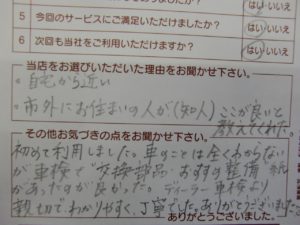 5 今回のサービスにご満足いただけましたか? はい・いいえ
6 次回も当社をご利用いただけますか? はい・いいえ
当店をお選びいただいた理由をお聞かせ下さい。
自宅から近い
市外にお住まいの人が(知人)ここが良いと
教えてくれた。
その他お気づきの点をお聞かせ下さい。
初めて利用しました。車のことは全くわからない
が車検で交換部品・おすすめ整備
があったのが良かった。ディーラー車検より
親切で、わかりやすく、丁寧でした。ありがとうございました。
ありがとうございました。